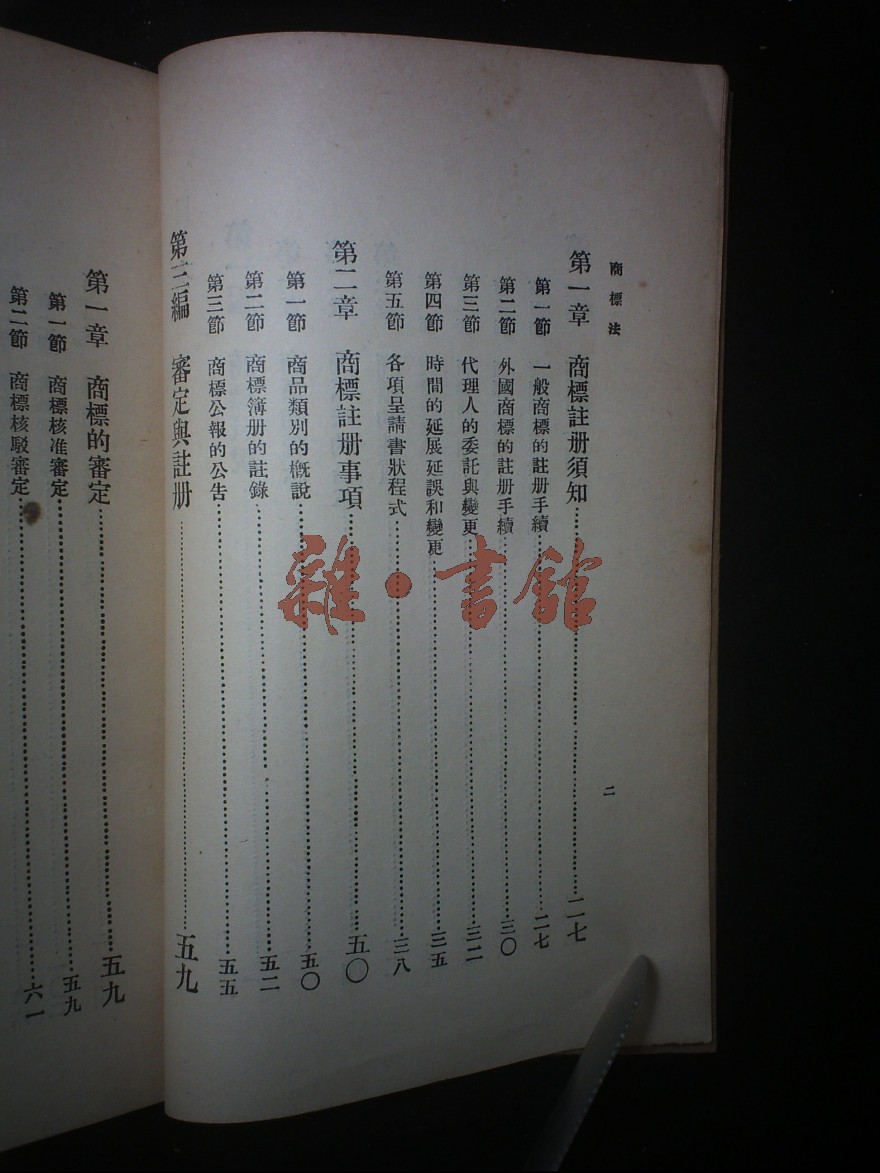 商標法
二
第一章 商標註册須知……二七
第一節 一般商標的註册手續……二七
第二節 外國商標的註册手續……三〇
第三節 代理人的委託與變更……三二
第四節 時間的延展延誤和變更……三五
第五節 各項呈請書狀程式……三八
第二章 商標註册事項……五〇
第一節 商品類別的概說……五〇
第二節 商標簿册的註錄……五二
第三節 商標公報的公告……五五
第三編 審定與註册……五九
第一章 商標的審定……五九
第一節 商標核准審定……五九
第二節 商標核駁審定……六一
雜·書館